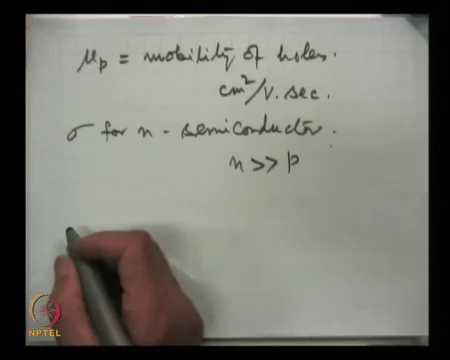 μp = mobility of holes.
cm²/V. sec.
σ for n - semiconductor.
n >> p
NPTEL